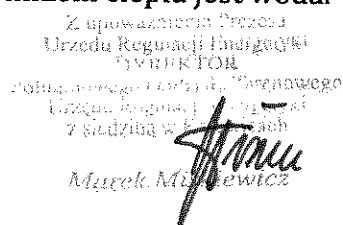 ciepła jest woda.
Z upoważnienia Prezesa
Urzędu Regulacji Energetyki
DYREKTOR
Południowego Oddziału Terenowego
Urzędu Regulacji Energetyki
z siedzibą w Katowicach
Marek Miśkiewicz